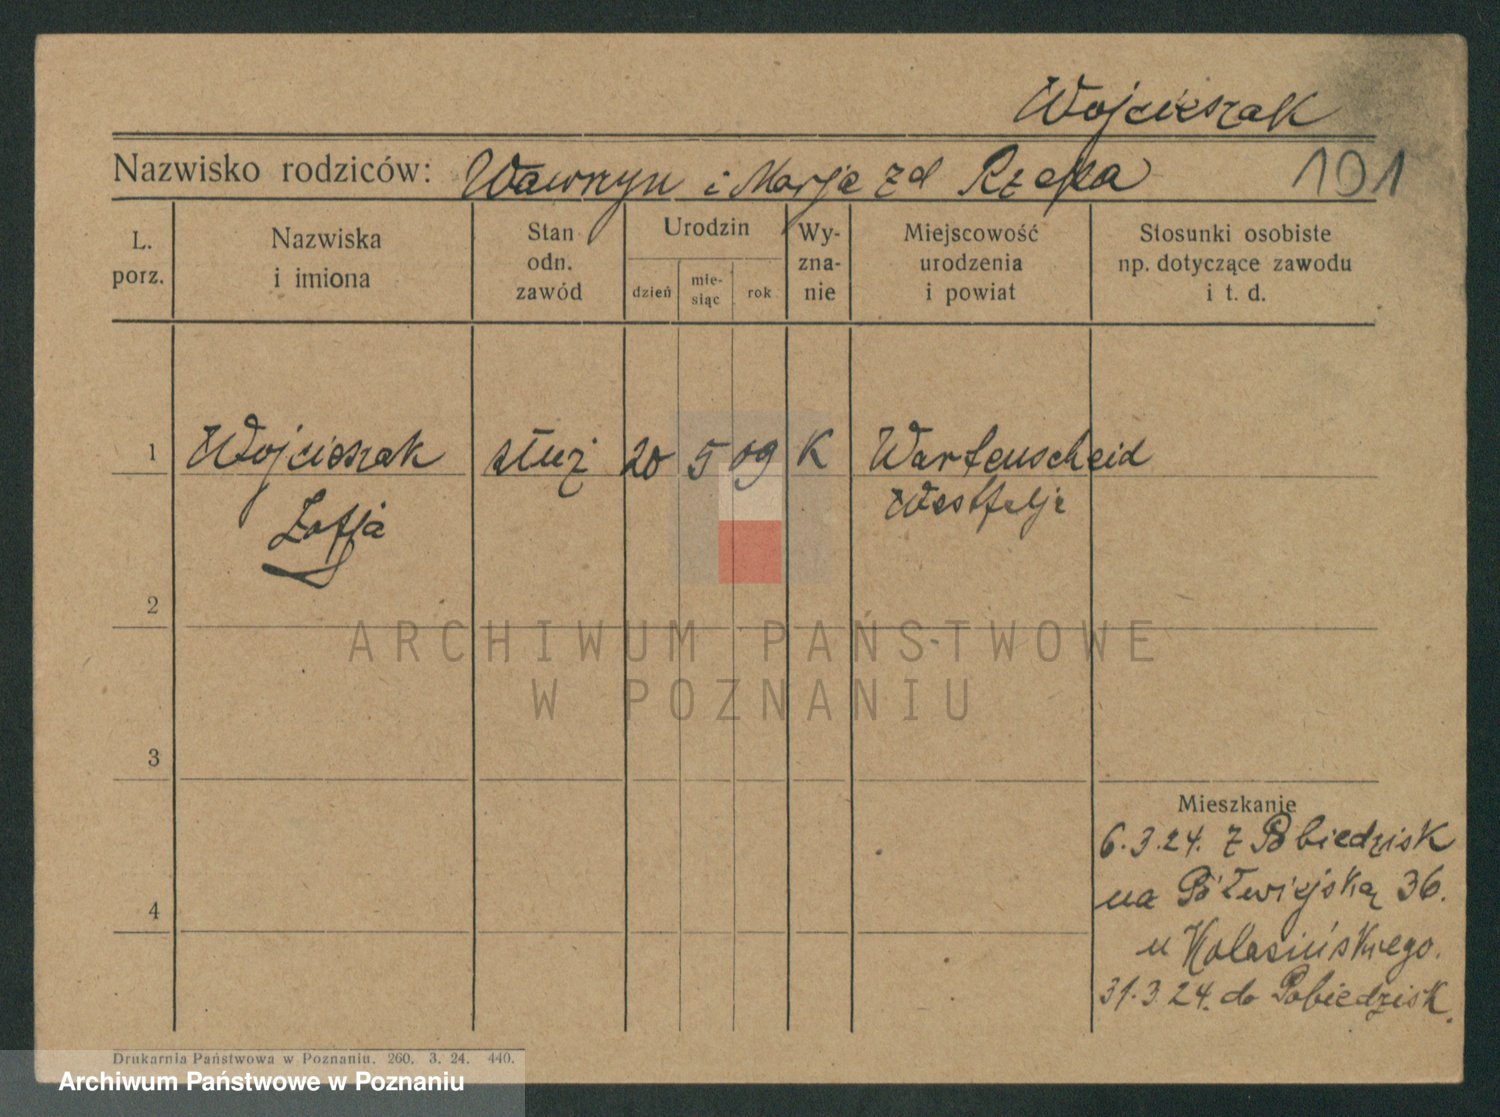 Wojcieszak
Nazwisko rodziców: Wawrzyn i Marja zd Rzepa 191
L. porz.
Nazwiska i imiona
Stan odn. zawód
Urodzin
dzień
mie-siąc
rok
Wy-zna-nie
Miejscowość urodzenia i powiat
Stosunki osobiste np. dotyczące zawodu i t. d.
1 Wojcieszak służ 20 5 09 K Wartenscheid
Zofja Westfalje
2
3
4
Mieszkanie
6.3.24. z Pobiedzisk
na Półwiejską 36.
u Kolasińskiego.
31.3.24. do Pobiedzisk.
Drukarnia Państwowa w Poznaniu. 260. 3. 24. 440.
ARCHIWUM PAŃSTWOWE
W POZNANIU
Archiwum Państwowe w Poznaniu